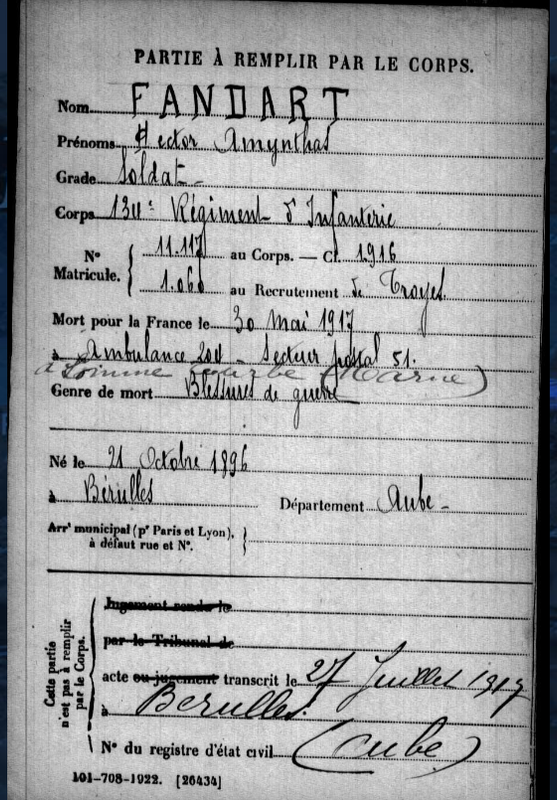 PARTIE À REMPLIR PAR LE CORPS.
Nom FANDART
Prénoms Hector Amynthas
Grade Soldat
Corps 134e Régiment d'Infanterie
N° Matricule. 11.117 au Corps. — Cl. 1916
1.060 au Recrutement de Troyes
Mort pour la France le 30 mai 1917
à Ambulance 204 - Secteur postal 51.
à Somme (Marne)
Genre de mort Blessures de guerre
Né le 21 Octobre 1896
à Bérulles Département Aube -
Arrt municipal (pr Paris et Lyon),
à défaut rue et N°.
Cette partie n'est pas à remplir par le Corps.
Jugement rendu le
par le Tribunal de
acte ou jugement transcrit le 27 Juillet 1917
à Berulles
N° du registre d'état civil (Aube)
101-708-1922. [26434]